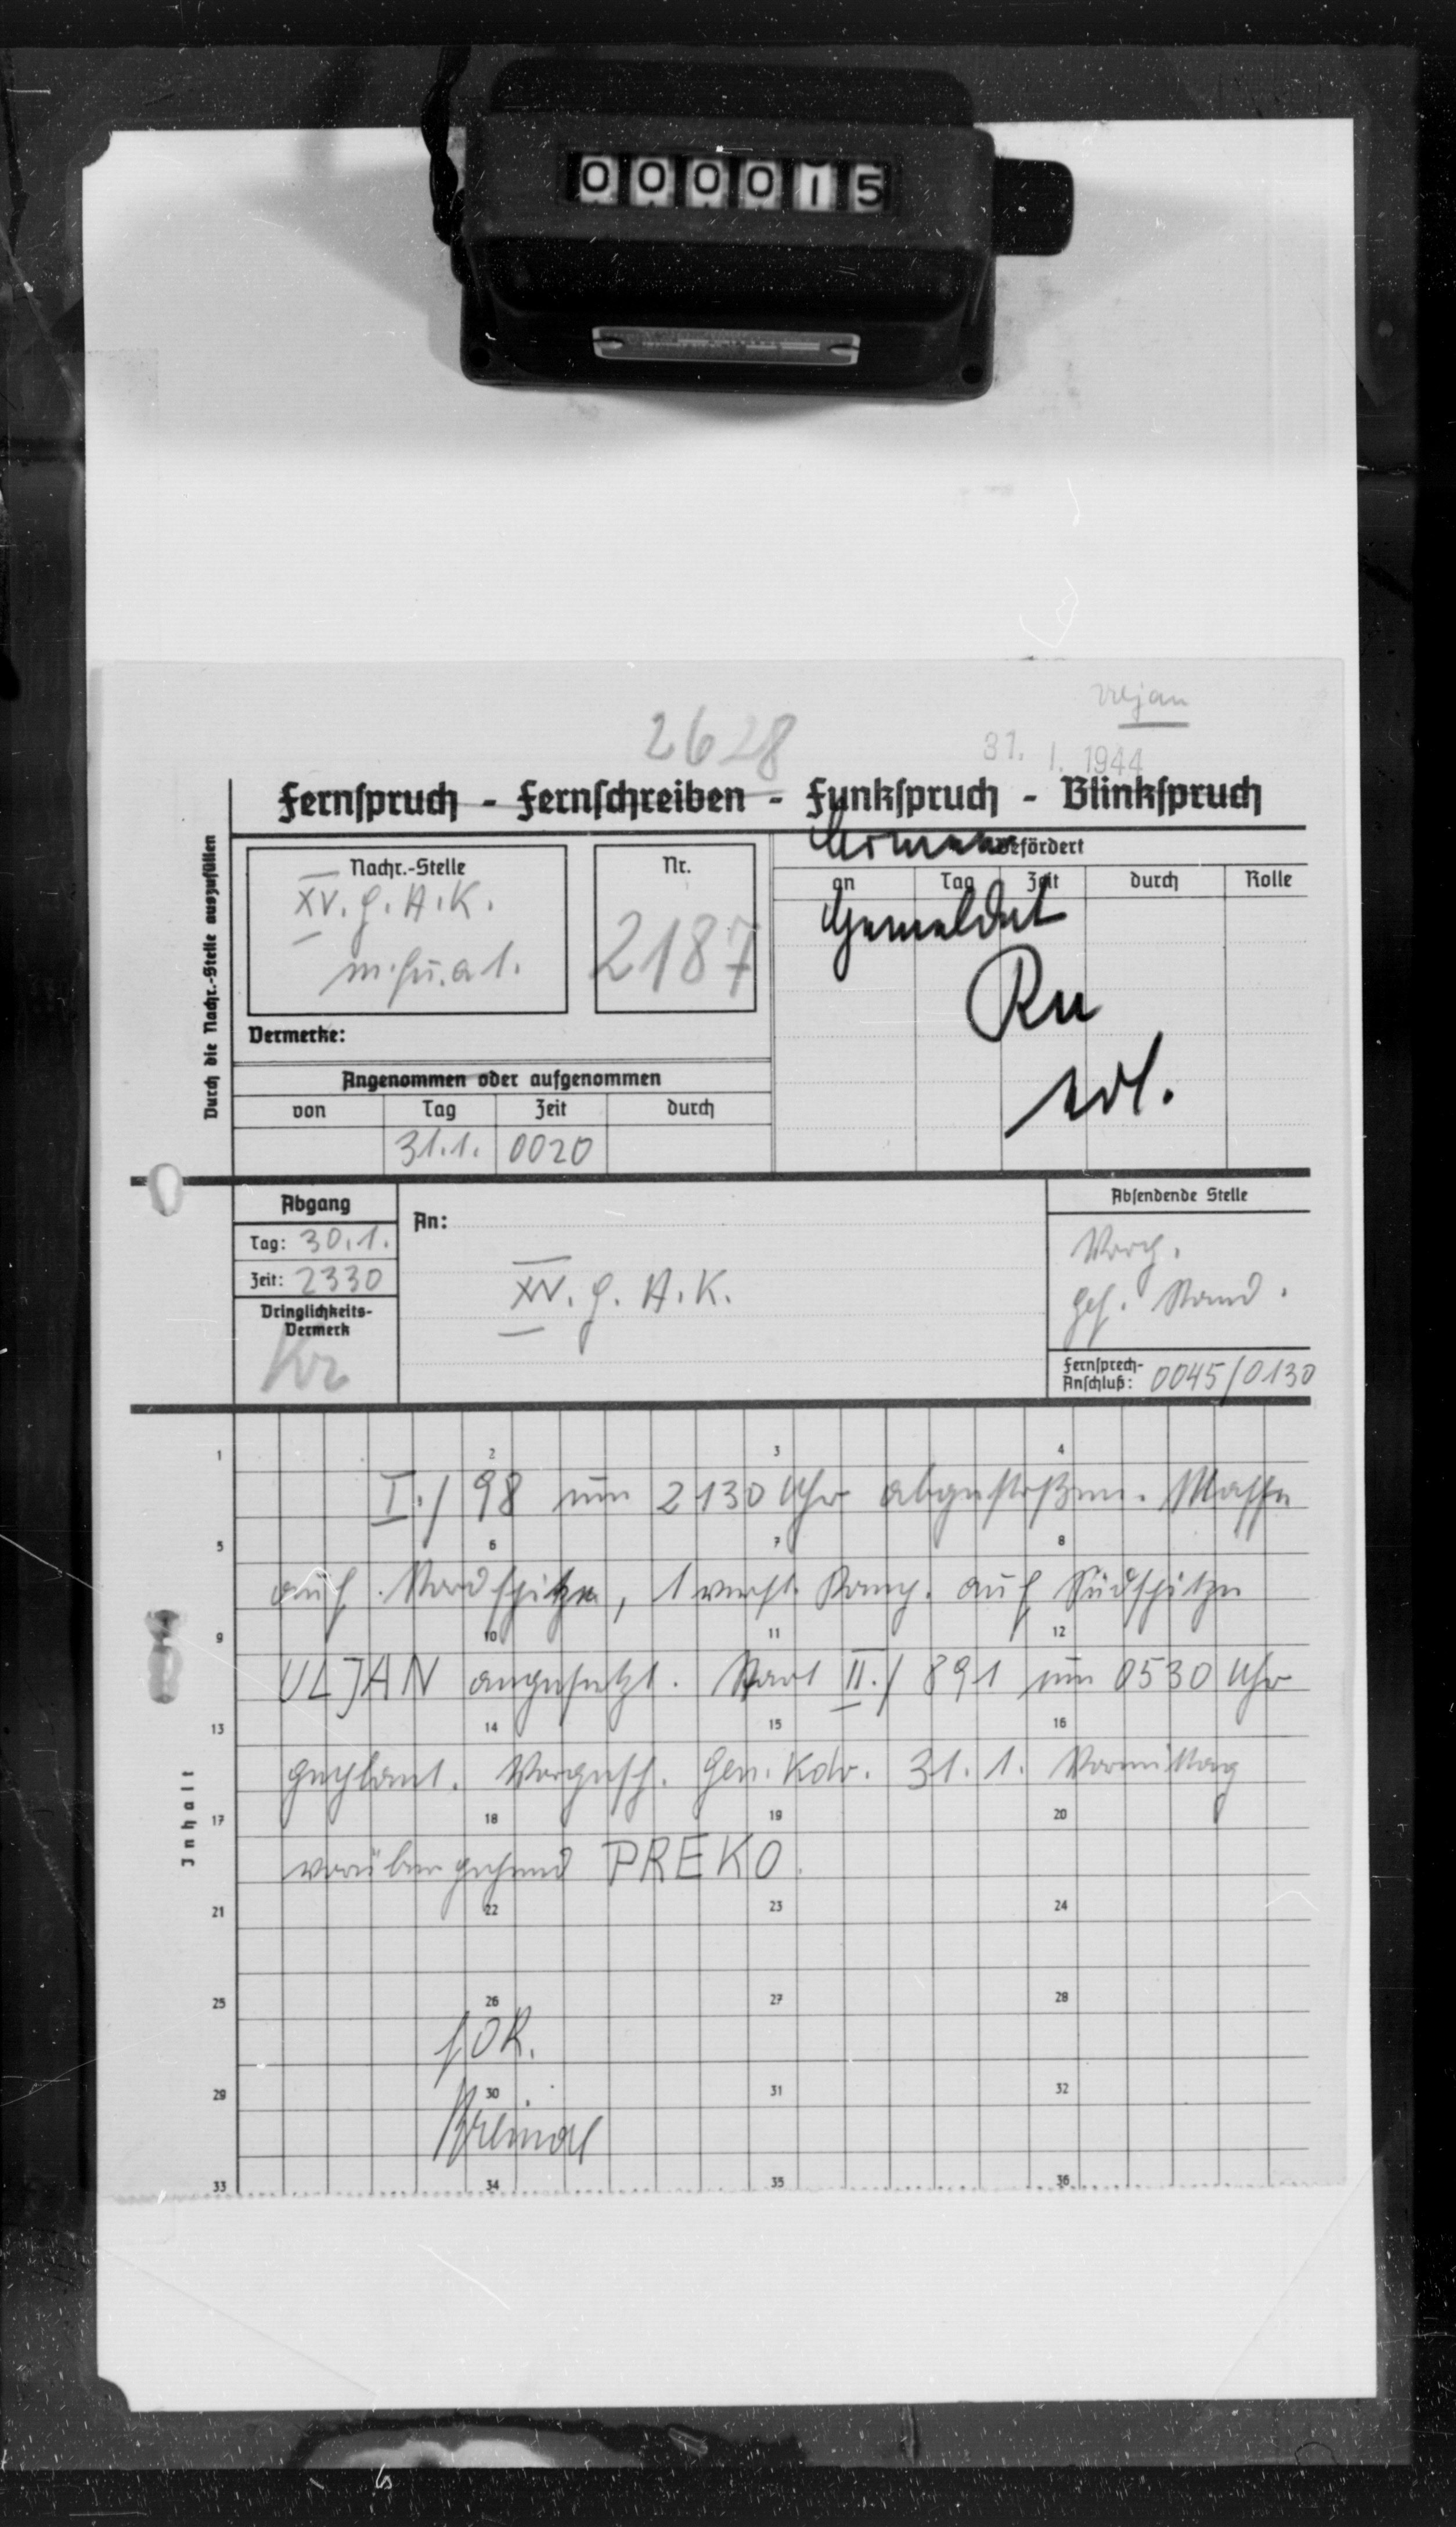 000015
Uljan
2628
31. 1. 1944
Fernspruch - Fernschreiben - Funkspruch - Blinkspruch
Durch die Nachr.-Stelle auszufüllen
Nachr.-Stelle
XV. G. A. K.
Nr.
2187
Vermerke:
Befördert
an Tag Zeit durch Rolle
Gemeldet
Ru
erl.
Angenommen oder aufgenommen
von Tag Zeit durch
31.1. 0020
Abgang
Tag: 30.1.
Zeit: 2330
Dringlichkeits-
Vermerk
Kr
An:
XV. G. A. K.
Absendende Stelle
Vorg.
Gef. Stand.
Fernsprech-
Anschluß: 0045/0130
Inhalt
1 2 3 4
I./98 um 2130 Uhr abgestoßen. Masse
5 6 7 8
auf Nordspitze, 1 verst. Komp. auf Südspitze
9 10 11 12
ULJAN angesetzt. Start II./891 um 0530 Uhr
13 14 15 16
geplant. Vorgesch. Gen. Kdo. 31. 1. Vormittag
17 18 19 20
vorübergehend PREKO.
21 22 23 24
25 26 27 28
29 30 31 32
33 34 35 36